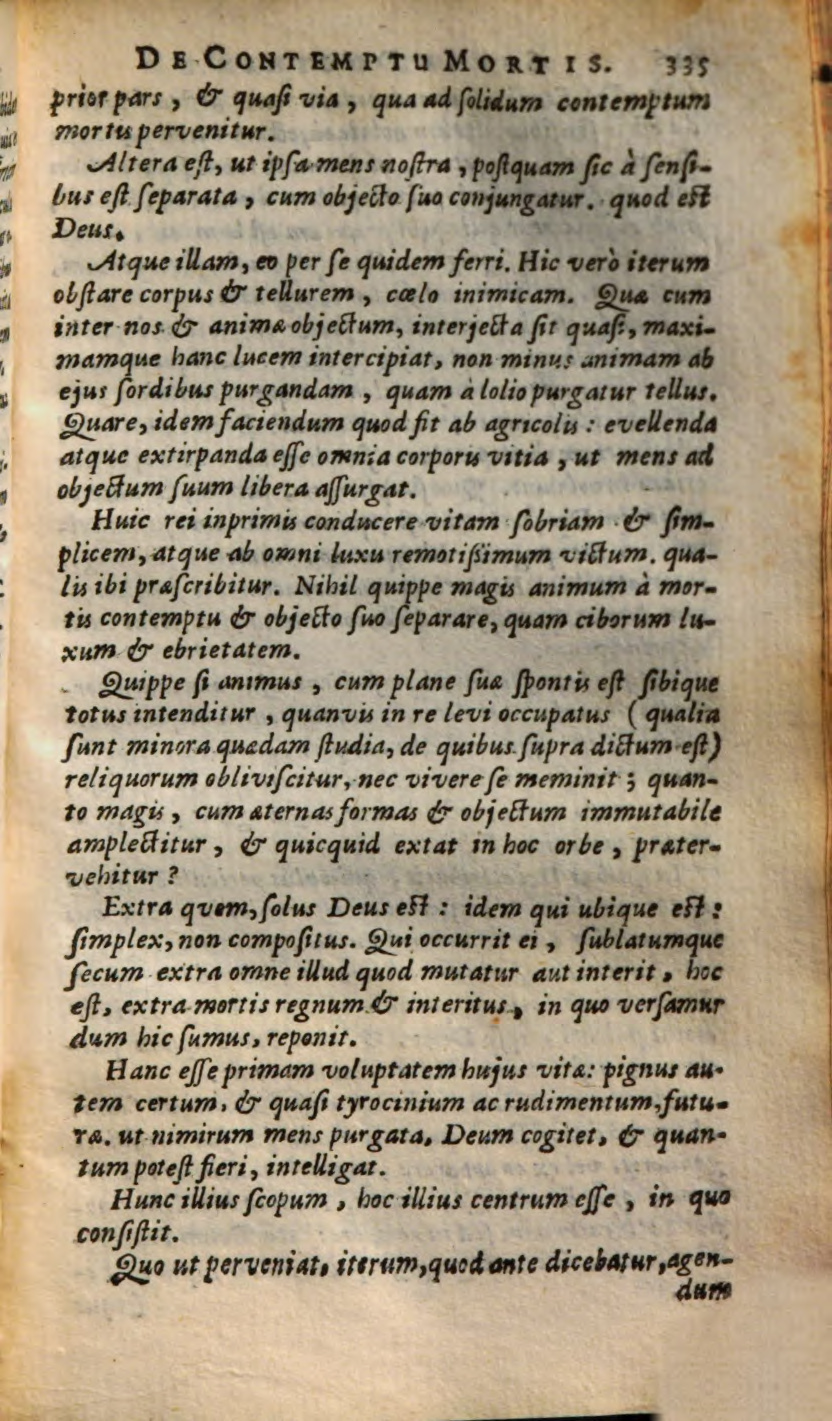 DE CONTEMPTU MORTIS. 335
prior pars, & quasi via, qua ad solidum contemptum
mortis pervenitur.
Altera est, ut ipsa mens nostra, postquam sic à sensi-
bus est separata, cum objecto suo conjungatur. quod est
Deus.
Atque illam, eo per se quidem ferri. Hic verò iterum
obstare corpus & tellurem, cœlo inimicam. Quæ cum
inter nos & animæ objectum, interjecta sit quasi, maxi-
mamque hanc lucem intercipiat, non minus animam ab
ejus sordibus purgandam, quam à lolio purgatur tellus.
Quare, idem faciendum quod fit ab agricolis: evellenda
atque extirpanda esse omnia corporis vitia, ut mens ad
objectum suum libera assurgat.
Huic rei inprimis conducere vitam sobriam & sim-
plicem, atque ab omni luxu remotissimum victum. qua-
lis ibi præscribitur. Nihil quippe magis animum à mor-
tis contemptu & objecto suo separare, quam ciborum lu-
xum & ebrietatem.
Quippe si animus, cum plane suæ spontis est sibique
totus intenditur, quanvis in re levi occupatus (qualia
sunt minora quædam studia, de quibus supra dictum est)
reliquorum obliviscitur, nec vivere se meminit; quan-
to magis, cum æternas formas & objectum immutabile
amplectitur, & quicquid extat in hoc orbe, præter-
vehitur?
Extra quem, solus Deus est: idem qui ubique est:
simplex, non compositus. Qui occurrit ei, sublatumque
secum extra omne illud quod mutatur aut interit, hoc
est, extra mortis regnum & interitus, in quo versamur
dum hic sumus, reponit.
Hanc esse primam voluptatem hujus vitæ: pignus au-
tem certum, & quasi tyrocinium ac rudimentum, futu-
ræ. ut nimirum mens purgata, Deum cogitet, & quan-
tum potest fieri, intelligat.
Hunc illius scopum, hoc illius centrum esse, in quo
consistit.
Quo ut perveniat, iterum, quod ante dicebatur, agen-
dum